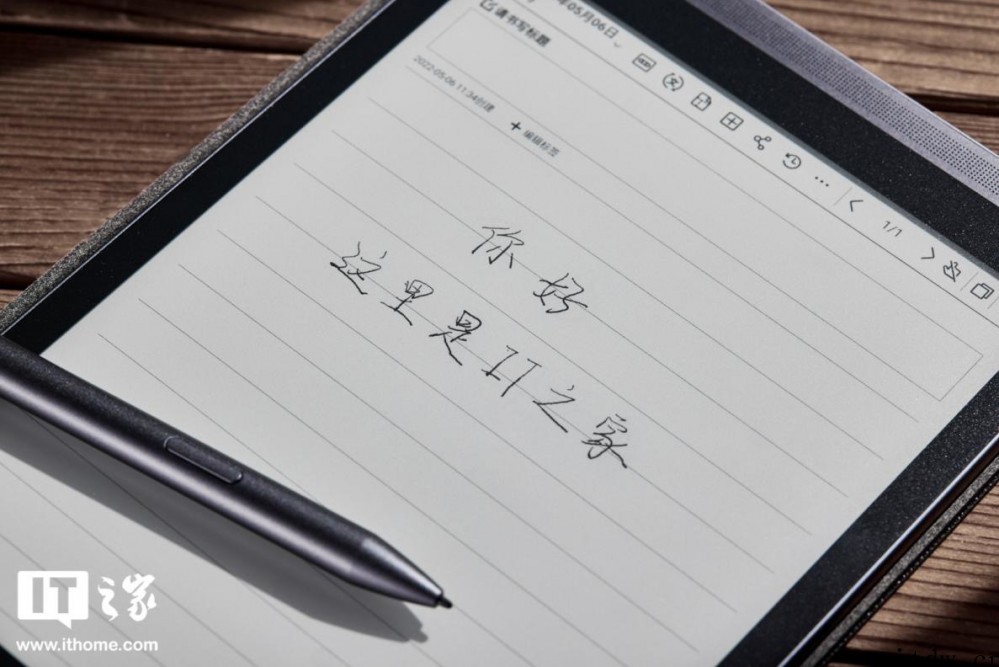 年05月06日
请书写标题
2022-05-06 11:34创建
+ 编辑标签
1/1
你好
这里是IT之家
IT之家
www.ithome.com